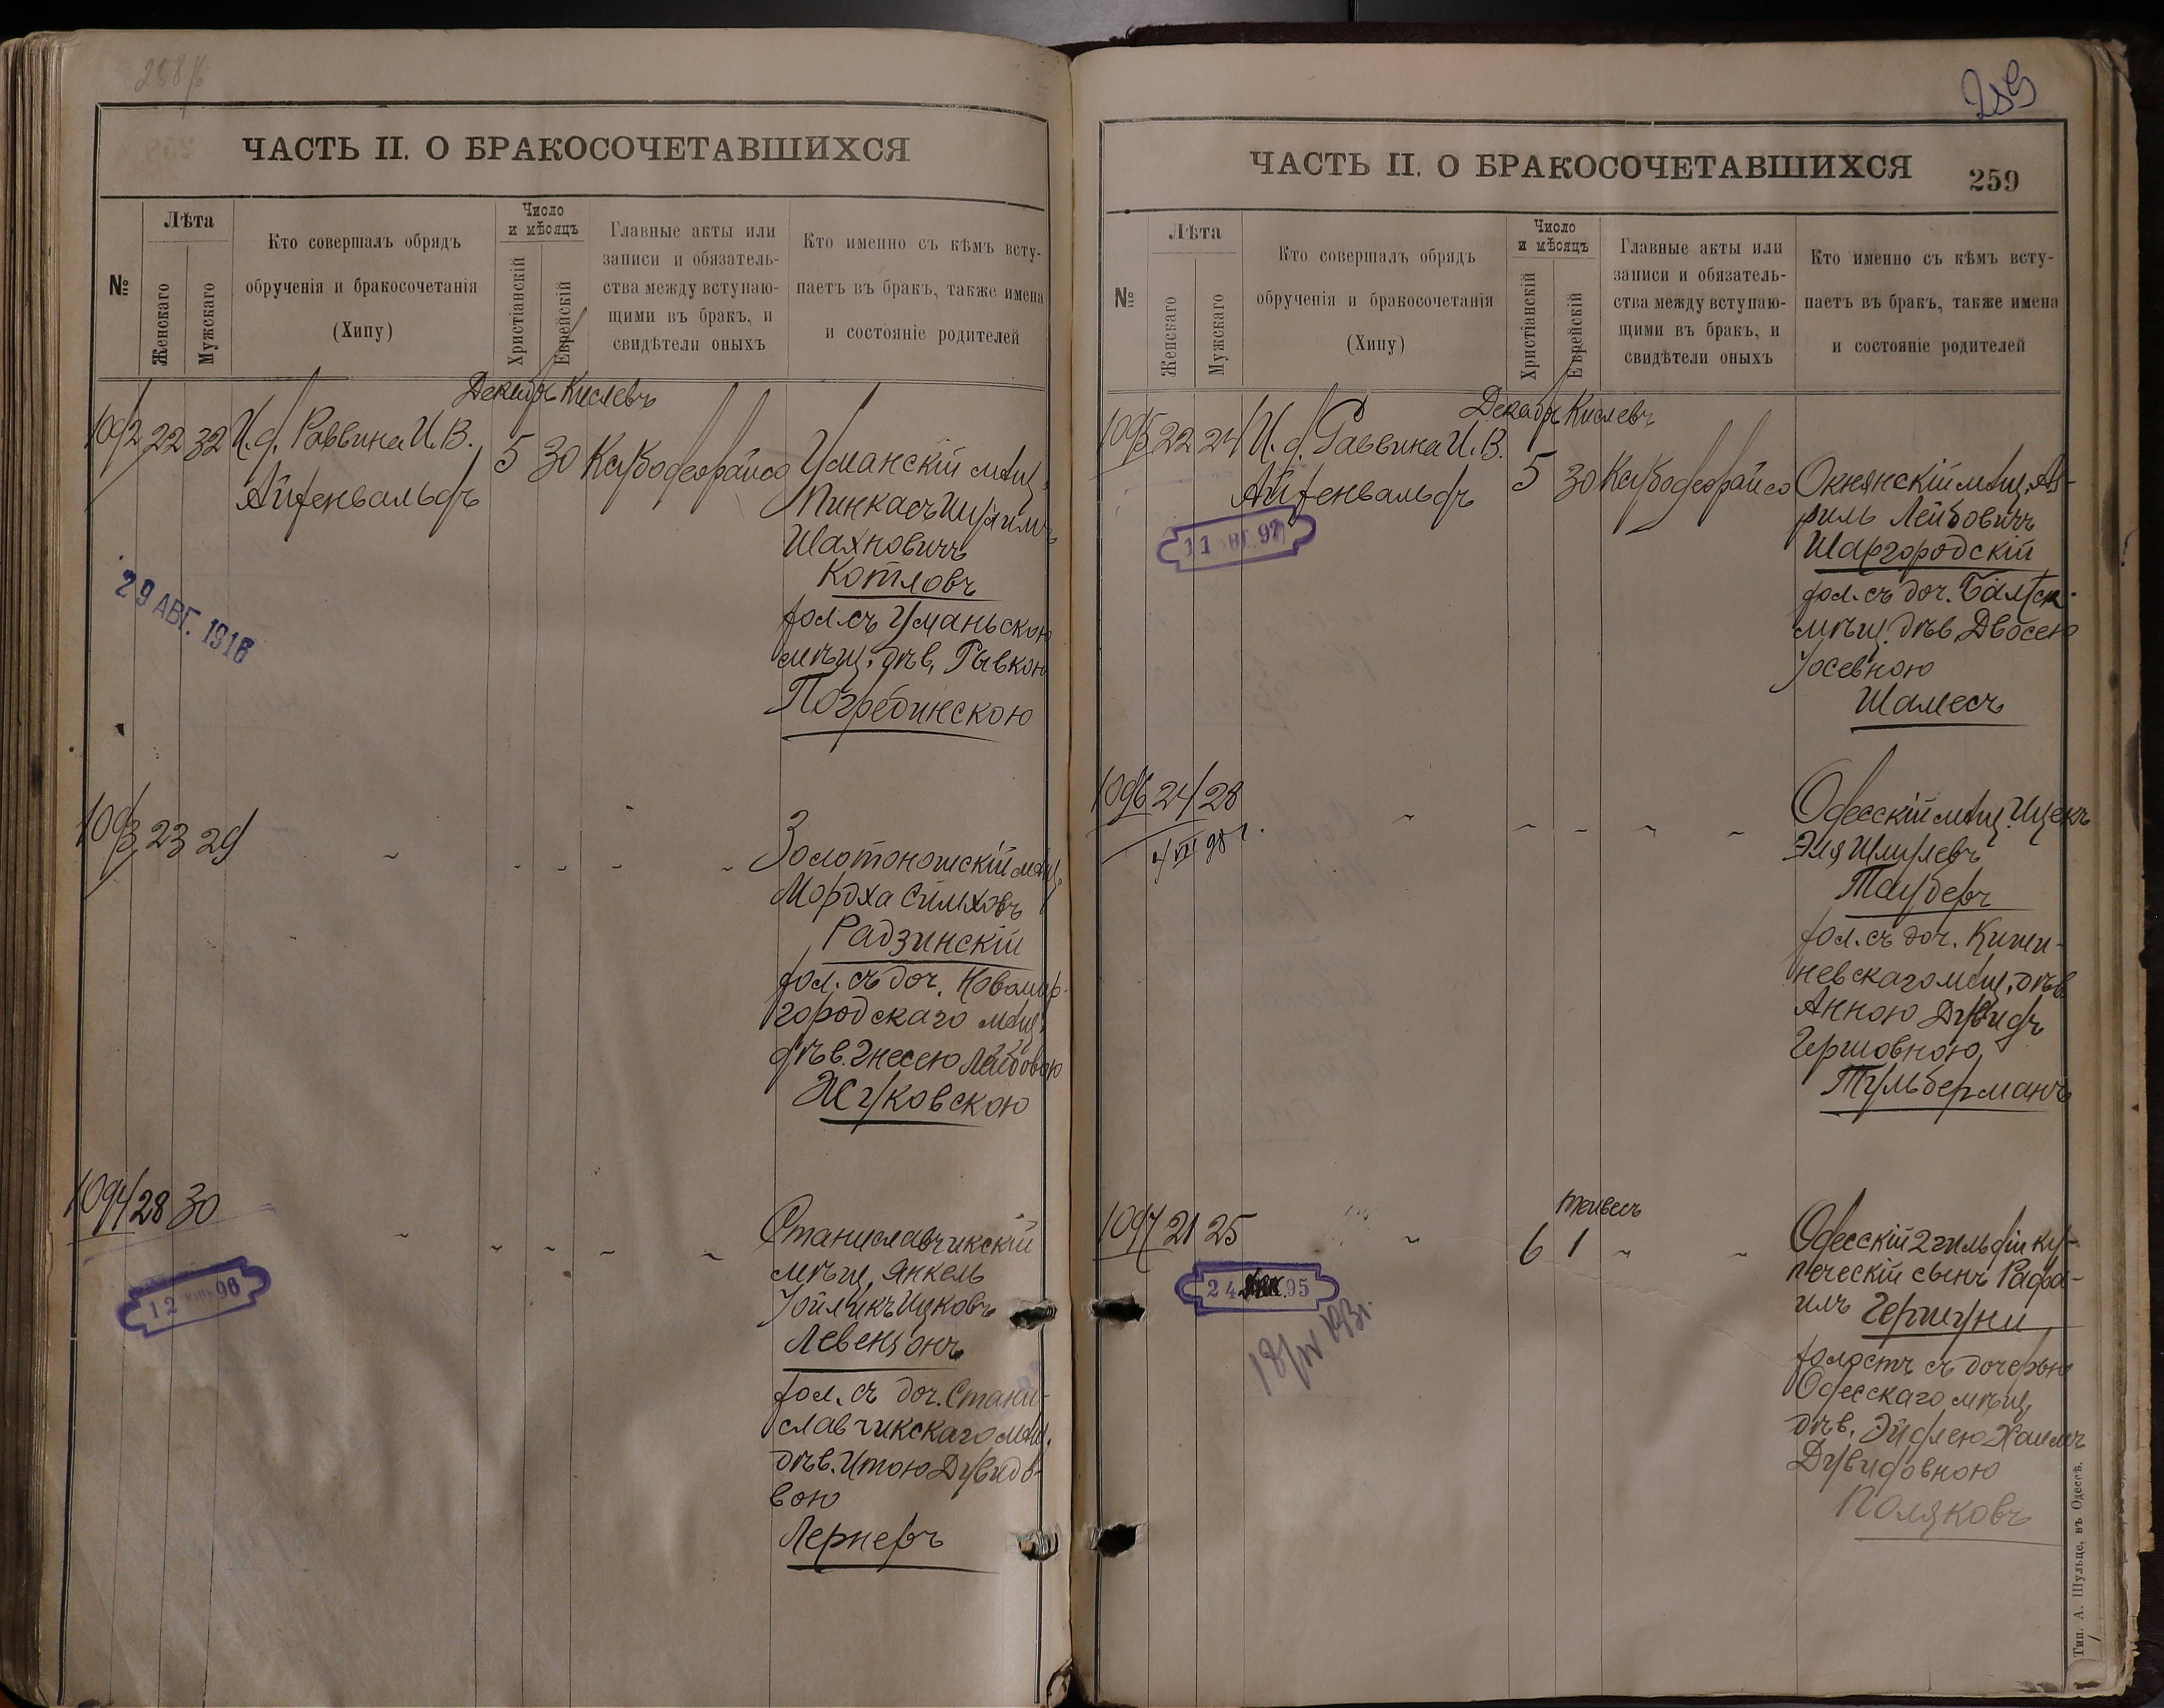 ЧАСТЬ II. О БРАКОСОЧЕТАВШИХСЯ
№
Лѣта
Женскаго
Мужскаго
Кто совершалъ обрядъ
обрученія и бракосочетанія
(Хипу)
Число
и мѣсяцъ
Христіанскій
Еврейскій
Главные акты или
записи и обязатель-
ства между вступаю-
щими въ бракъ, и
свидѣтели оныхъ
Кто именно съ кѣмъ всту-
паетъ въ бракъ, также имена
и состояніе родителей
Декабрь Кислевъ
1092 22 32 И.д. Раввина И.В.
Айзенвальдъ
5 30
Уманскій мѣщ.
Пинкасъ
Шахновичъ
Котловъ
хол. съ Уманьскою
мѣщ. дѣв. Рывкою
Погребинскою
29 АВГ. 1916
1093 23 29
Золотоношскій мѣщ.
Мордха
Радзинскій
хол. съ доч. Новомир-
городскаго мѣщ.
дѣв. Гнесею Лейбовою
Жуковскою
1094 28 30
Станиславчикскій
мѣщ. Янкель
Ицковъ
Левензонъ
хол. съ доч. Стани-
славчикскаго мѣщ.
дѣв. Итою Дувидо-
вою
Лернеръ
12 96
259
ЧАСТЬ II. О БРАКОСОЧЕТАВШИХСЯ
259
№
Лѣта
Женскаго
Мужскаго
Кто совершалъ обрядъ
обрученія и бракосочетанія
(Хипу)
Число
и мѣсяцъ
Христіанскій
Еврейскій
Главные акты или
записи и обязатель-
ства между вступаю-
щими въ бракъ, и
свидѣтели оныхъ
Кто именно съ кѣмъ всту-
паетъ въ бракъ, также имена
и состояніе родителей
Декабрь Кислевъ
1095 22 24 И.д. Раввина И.В.
Айзенвальдъ
5 30
Окнянскій мѣщ. Аб-
риль Лейбовичъ
Шаргородскій
хол. съ доч. Балтск.
мѣщ. дѣв. Двосею
Іосевною
Шамесъ
11 АВГ. 97
1096 24 28
Одесскій мѣщ. Ицекъ
Эля Шмулевъ
Тауберъ
хол. съ доч. Киши-
невскаго мѣщ. дѣв.
Анною Дувидъ
Гершовною
Тульберманъ
1097 21 25
Тейвесъ
6 1
Одесскій 2 гильдіи ку-
печескій сынъ Рафа-
илъ Гершуни
холостъ съ дочерью
Одесскаго мѣщ.
дѣв. Эйдлею Хаимъ
Дувидовною
Поляковъ
24 95
18/IV 193
Тип. А. Шульце, въ Одессѣ.